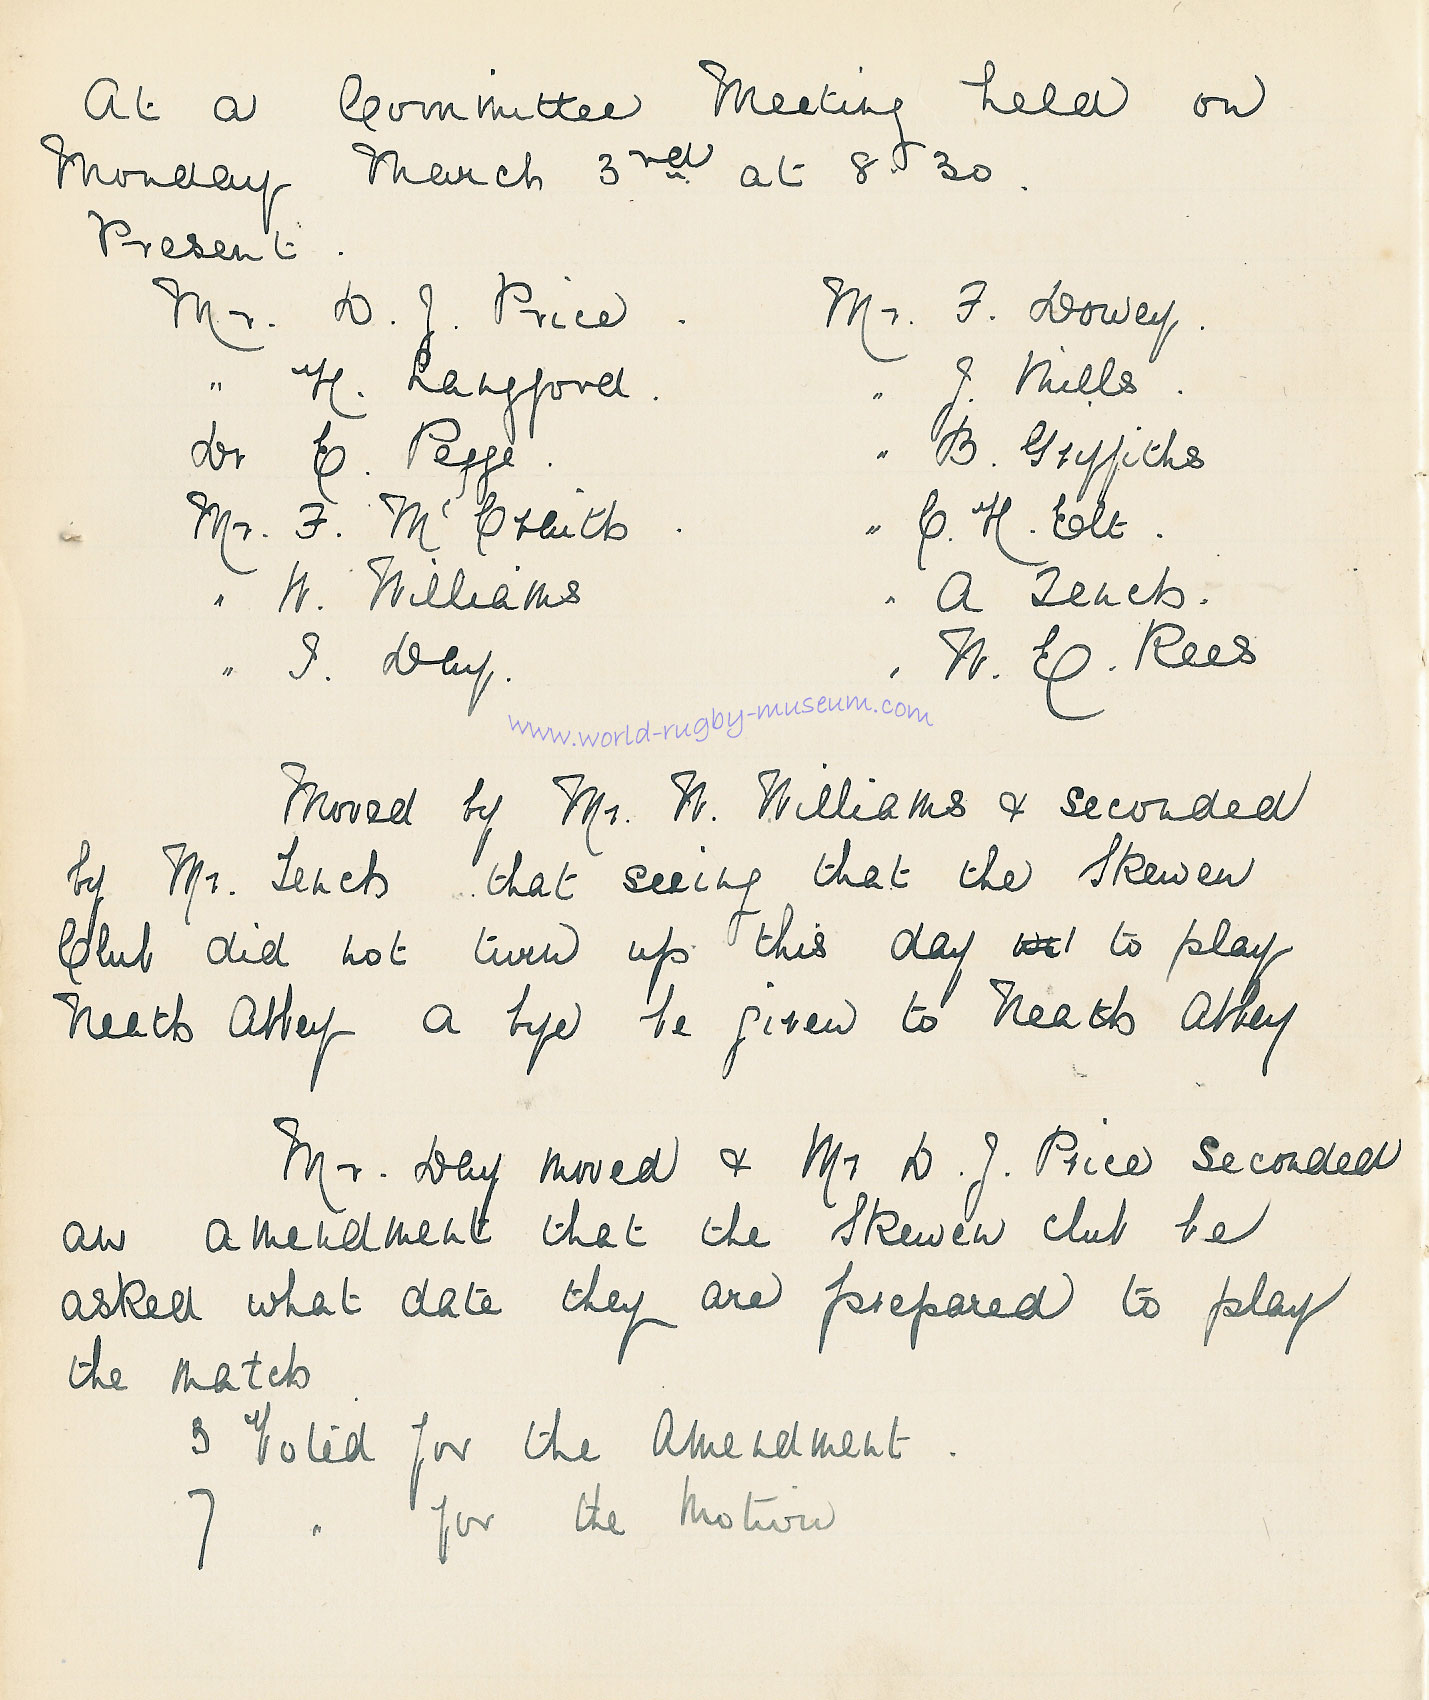 At a Committee Meeting held on
Monday March 3rd at 8.30.
Present.
Mr. D. J. Price. Mr. F. Dowey.
" H. Langford. " J. Mills.
Dr E. Pegge. " B. Griffiths
Mr. F. Mc Creith. " C. H. Elt.
" W. Williams " A Tench.
" I. Day. " W. E. Rees
www.world-rugby-museum.com
Moved by Mr. W. Williams & seconded
by Mr. Tench that seeing that the Skewen
Club did not turn up this day to play
Neath Abbey a bye be given to Neath Abbey
Mr. Day moved & Mr D. J. Price seconded
an amendment that the Skewen club be
asked what date they are prepared to play
the match
3 Voted for the Amendment.
7 " for the Motion